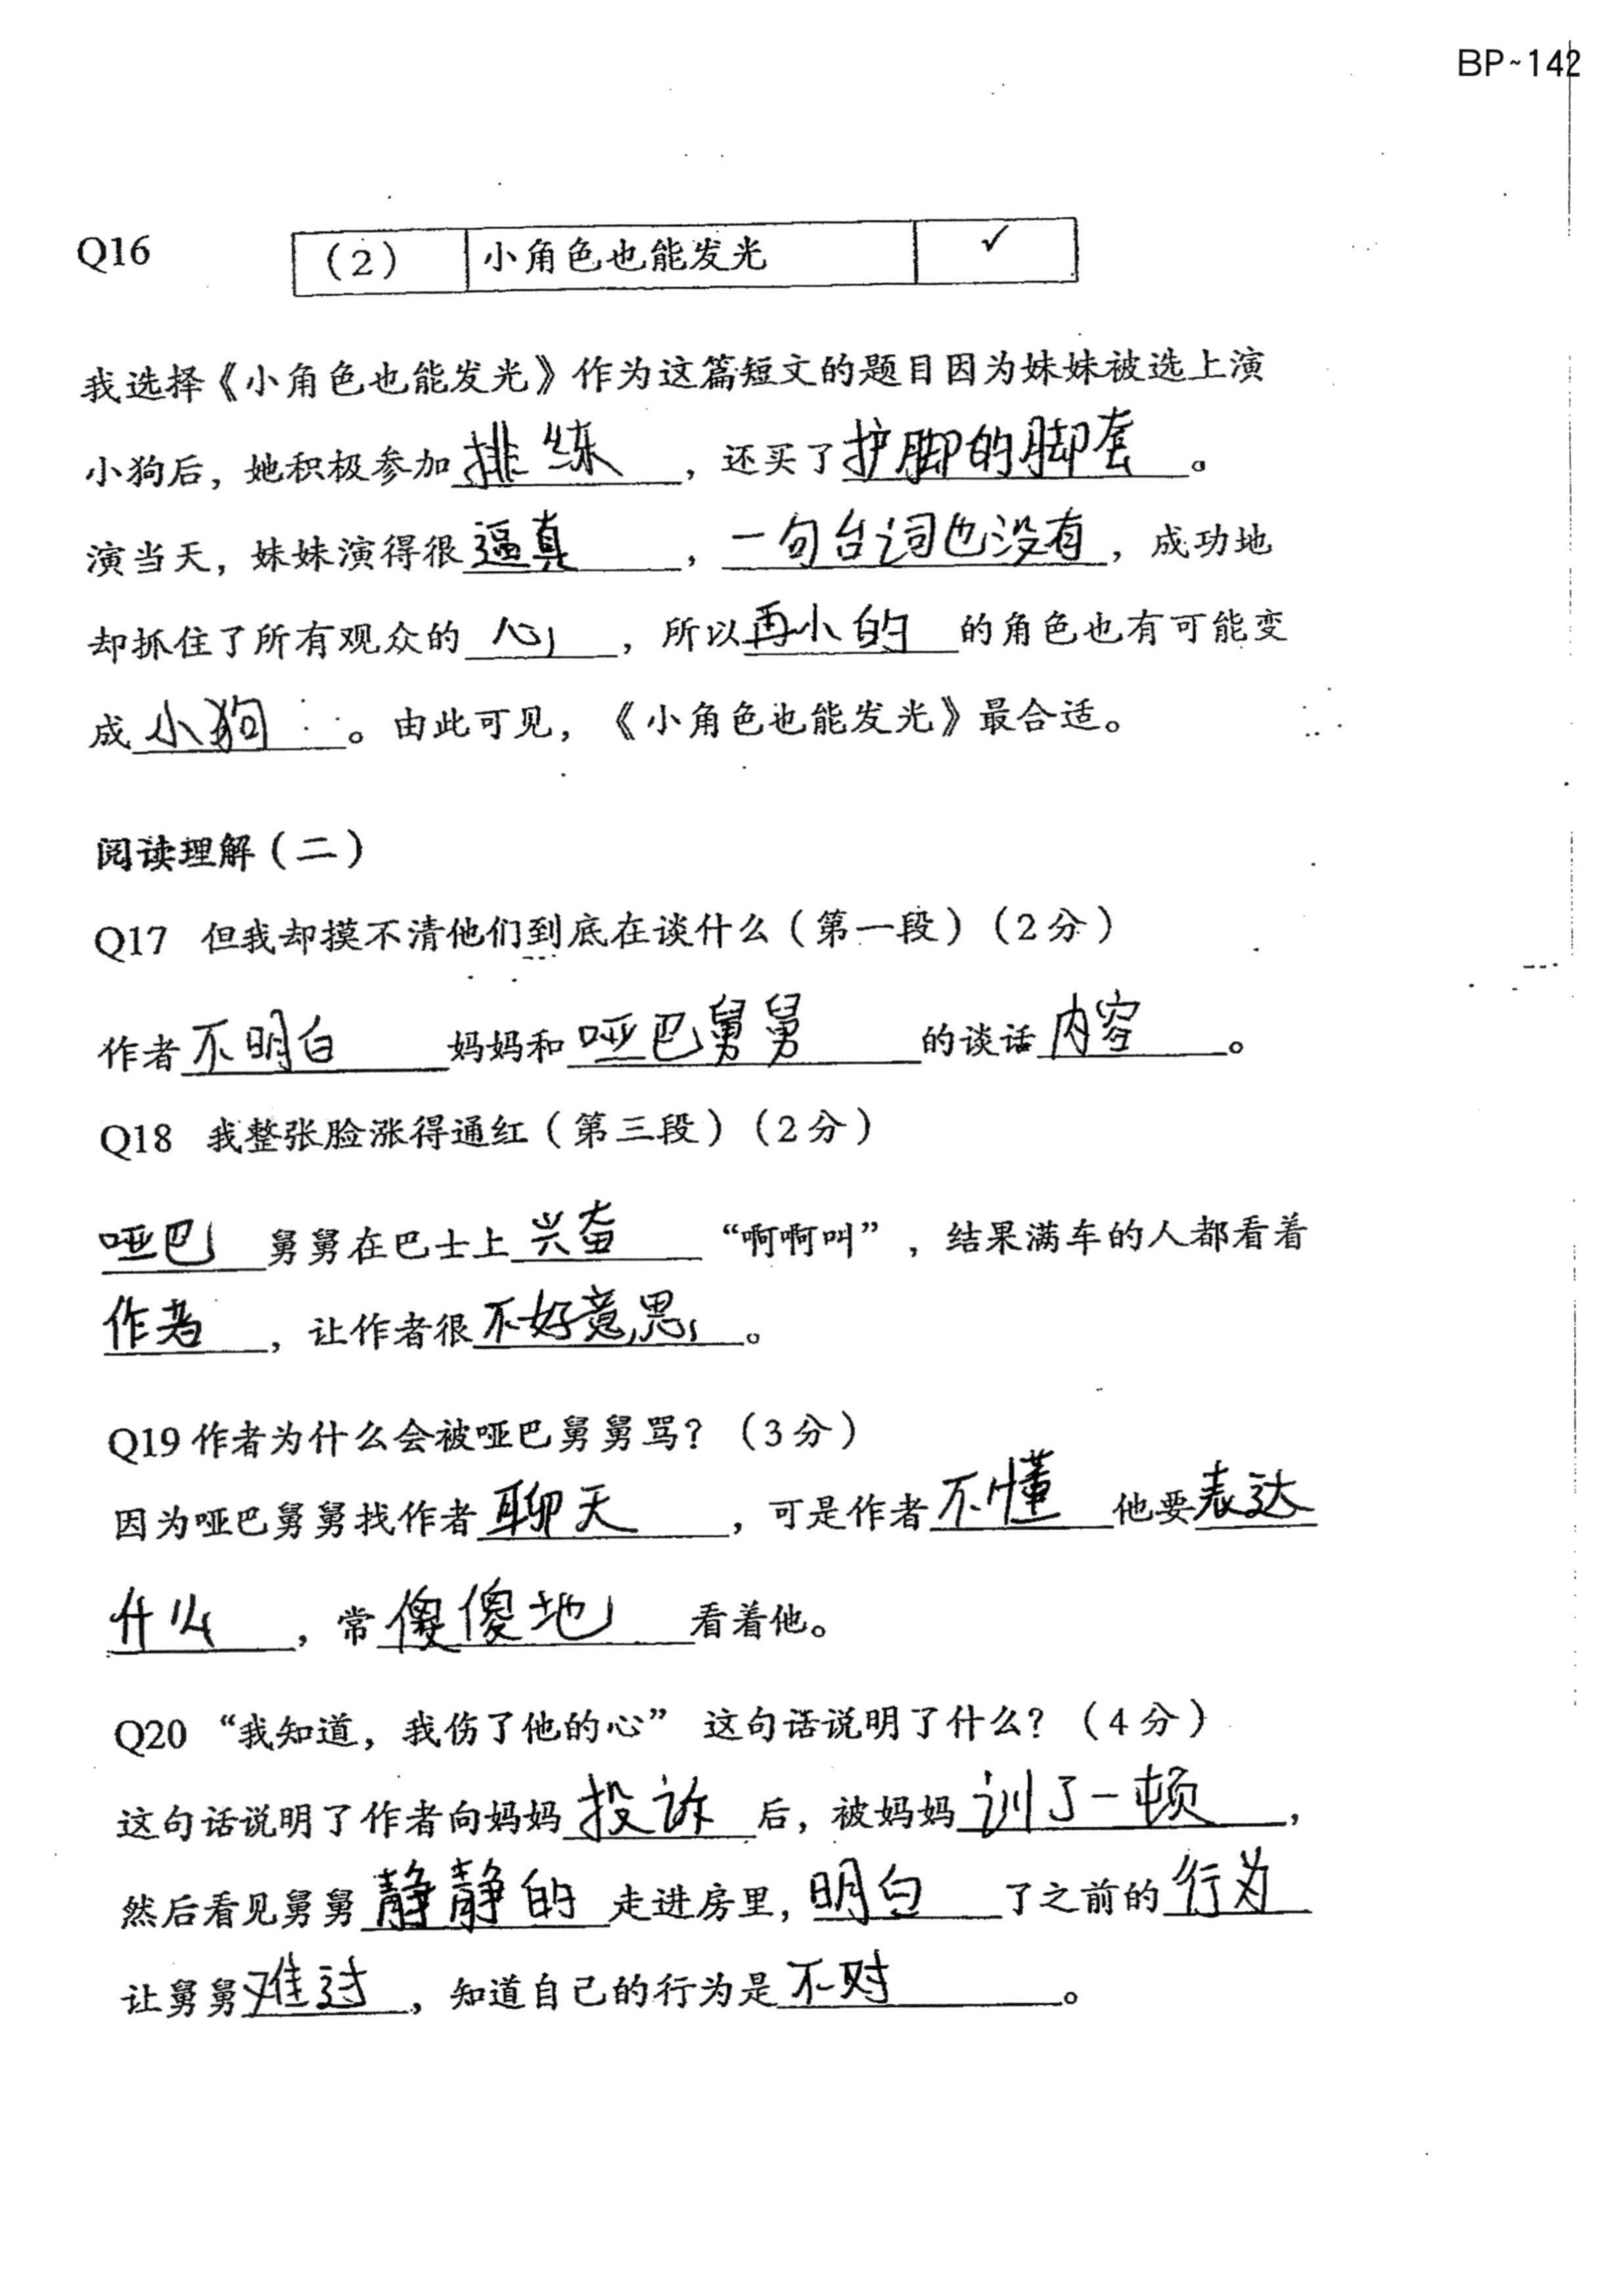 BP~142
Q16 （2） 小角色也能发光 ✓
我选择《小角色也能发光》作为这篇短文的题目因为妹妹被选上演
小狗后，她积极参加排练，还买了护脚的脚套。
演当天，妹妹演得很逼真，一句台词也没有，成功地
却抓住了所有观众的心，所以再小的的角色也有可能变
成小狗。由此可见，《小角色也能发光》最合适。
阅读理解（二）
Q17 但我却摸不清他们到底在谈什么（第一段）（2分）
作者不明白妈妈和哑巴舅舅的谈话内容。
Q18 我整张脸涨得通红（第三段）（2分）
哑巴舅舅在巴士上兴奋“啊啊叫”，结果满车的人都看着
作者，让作者很不好意思。
Q19 作者为什么会被哑巴舅舅骂？（3分）
因为哑巴舅舅找作者聊天，可是作者不懂他要表达
什么，常傻傻地看着他。
Q20 “我知道，我伤了他的心” 这句话说明了什么？（4分）
这句话说明了作者向妈妈投诉后，被妈妈训了一顿，
然后看见舅舅静静的走进房里，明白了之前的行为
让舅舅难过，知道自己的行为是不对。